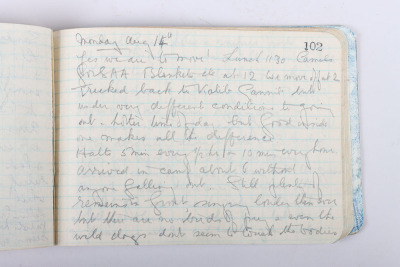 Monday Aug 14th
102
Yes we are to move! Lunch 11.30 Camels
for SAA Blankets etc at 12 we move off at 2
Trekked back to
under very different conditions to going
out - hotter time of day but good
one makes all the difference
Halts 5 min every 1/2 hr or 10 min every hour
Arrived in camp about 6 without
anyone falling out. Still plenty of
remnants from
but there are no birds of prey & even the
wild dogs don't seem to touch the bodies